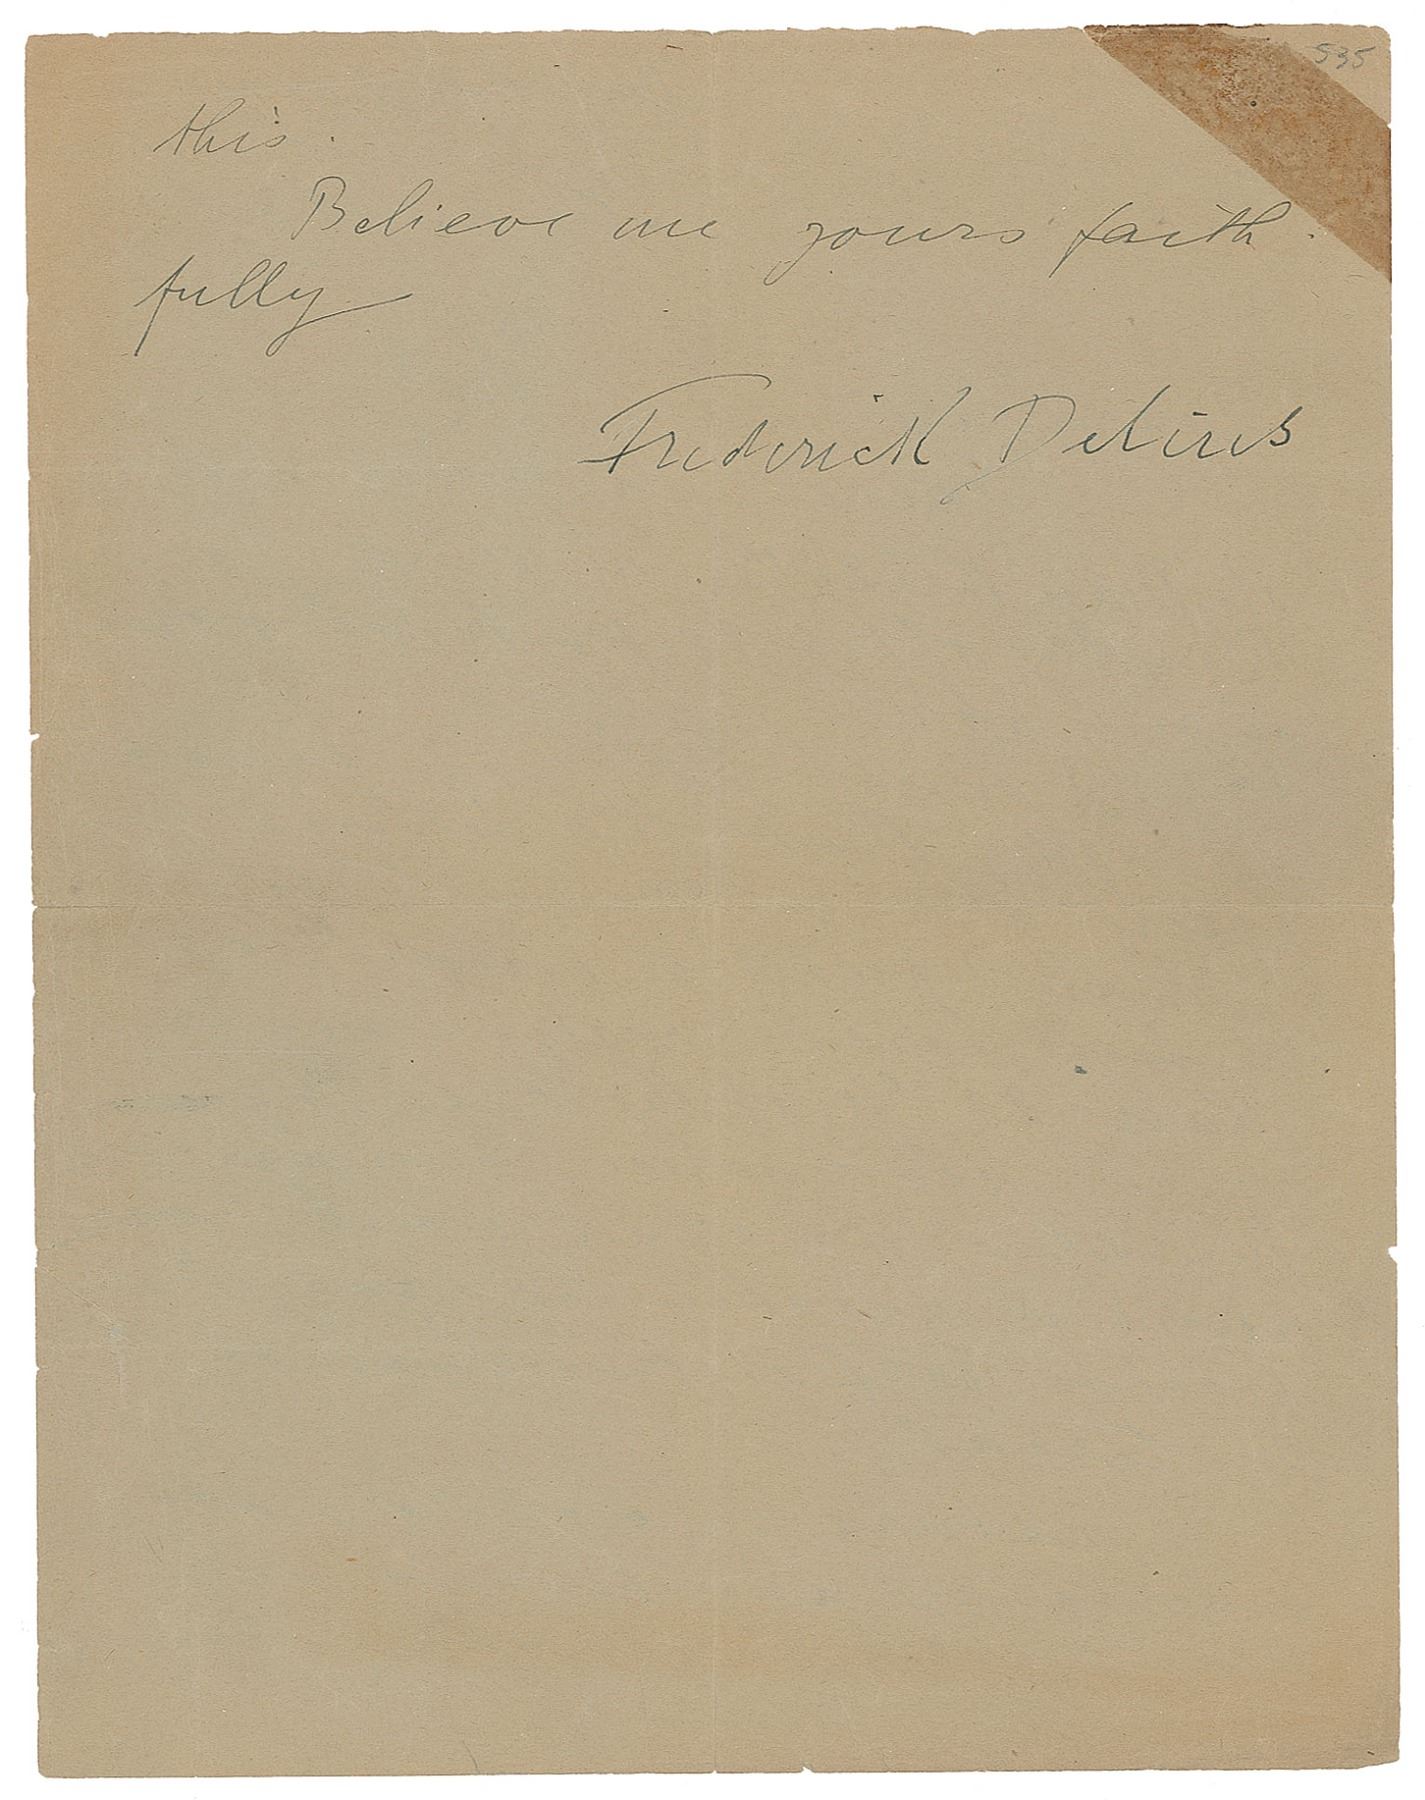 535
this.
Believe me yours faith-
fully
Frederick Delius